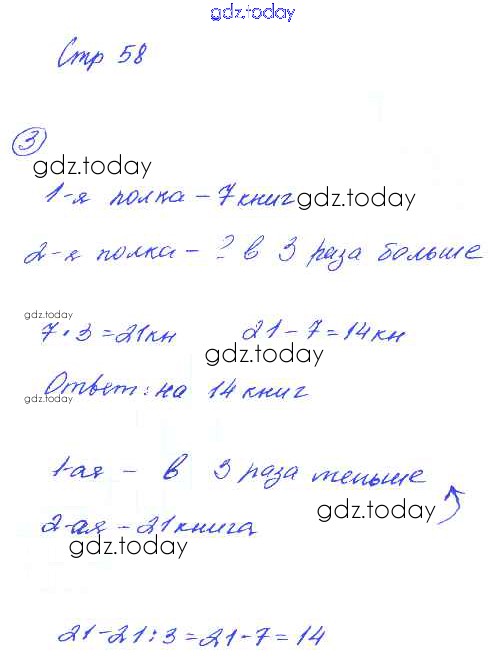 gdz.today
Стр 58
3
gdz.today
1-я полка - 7 книг gdz.today
2-я полка - ? в 3 раза больше
gdz.today
7 · 3 = 21 кн 21 - 7 = 14 кн
gdz.today
Ответ: на 14 книг
gdz.today
1-ая - в 3 раза меньше
gdz.today
2-ая - 21 книга
gdz.today
21 - 21 : 3 = 21 - 7 = 14